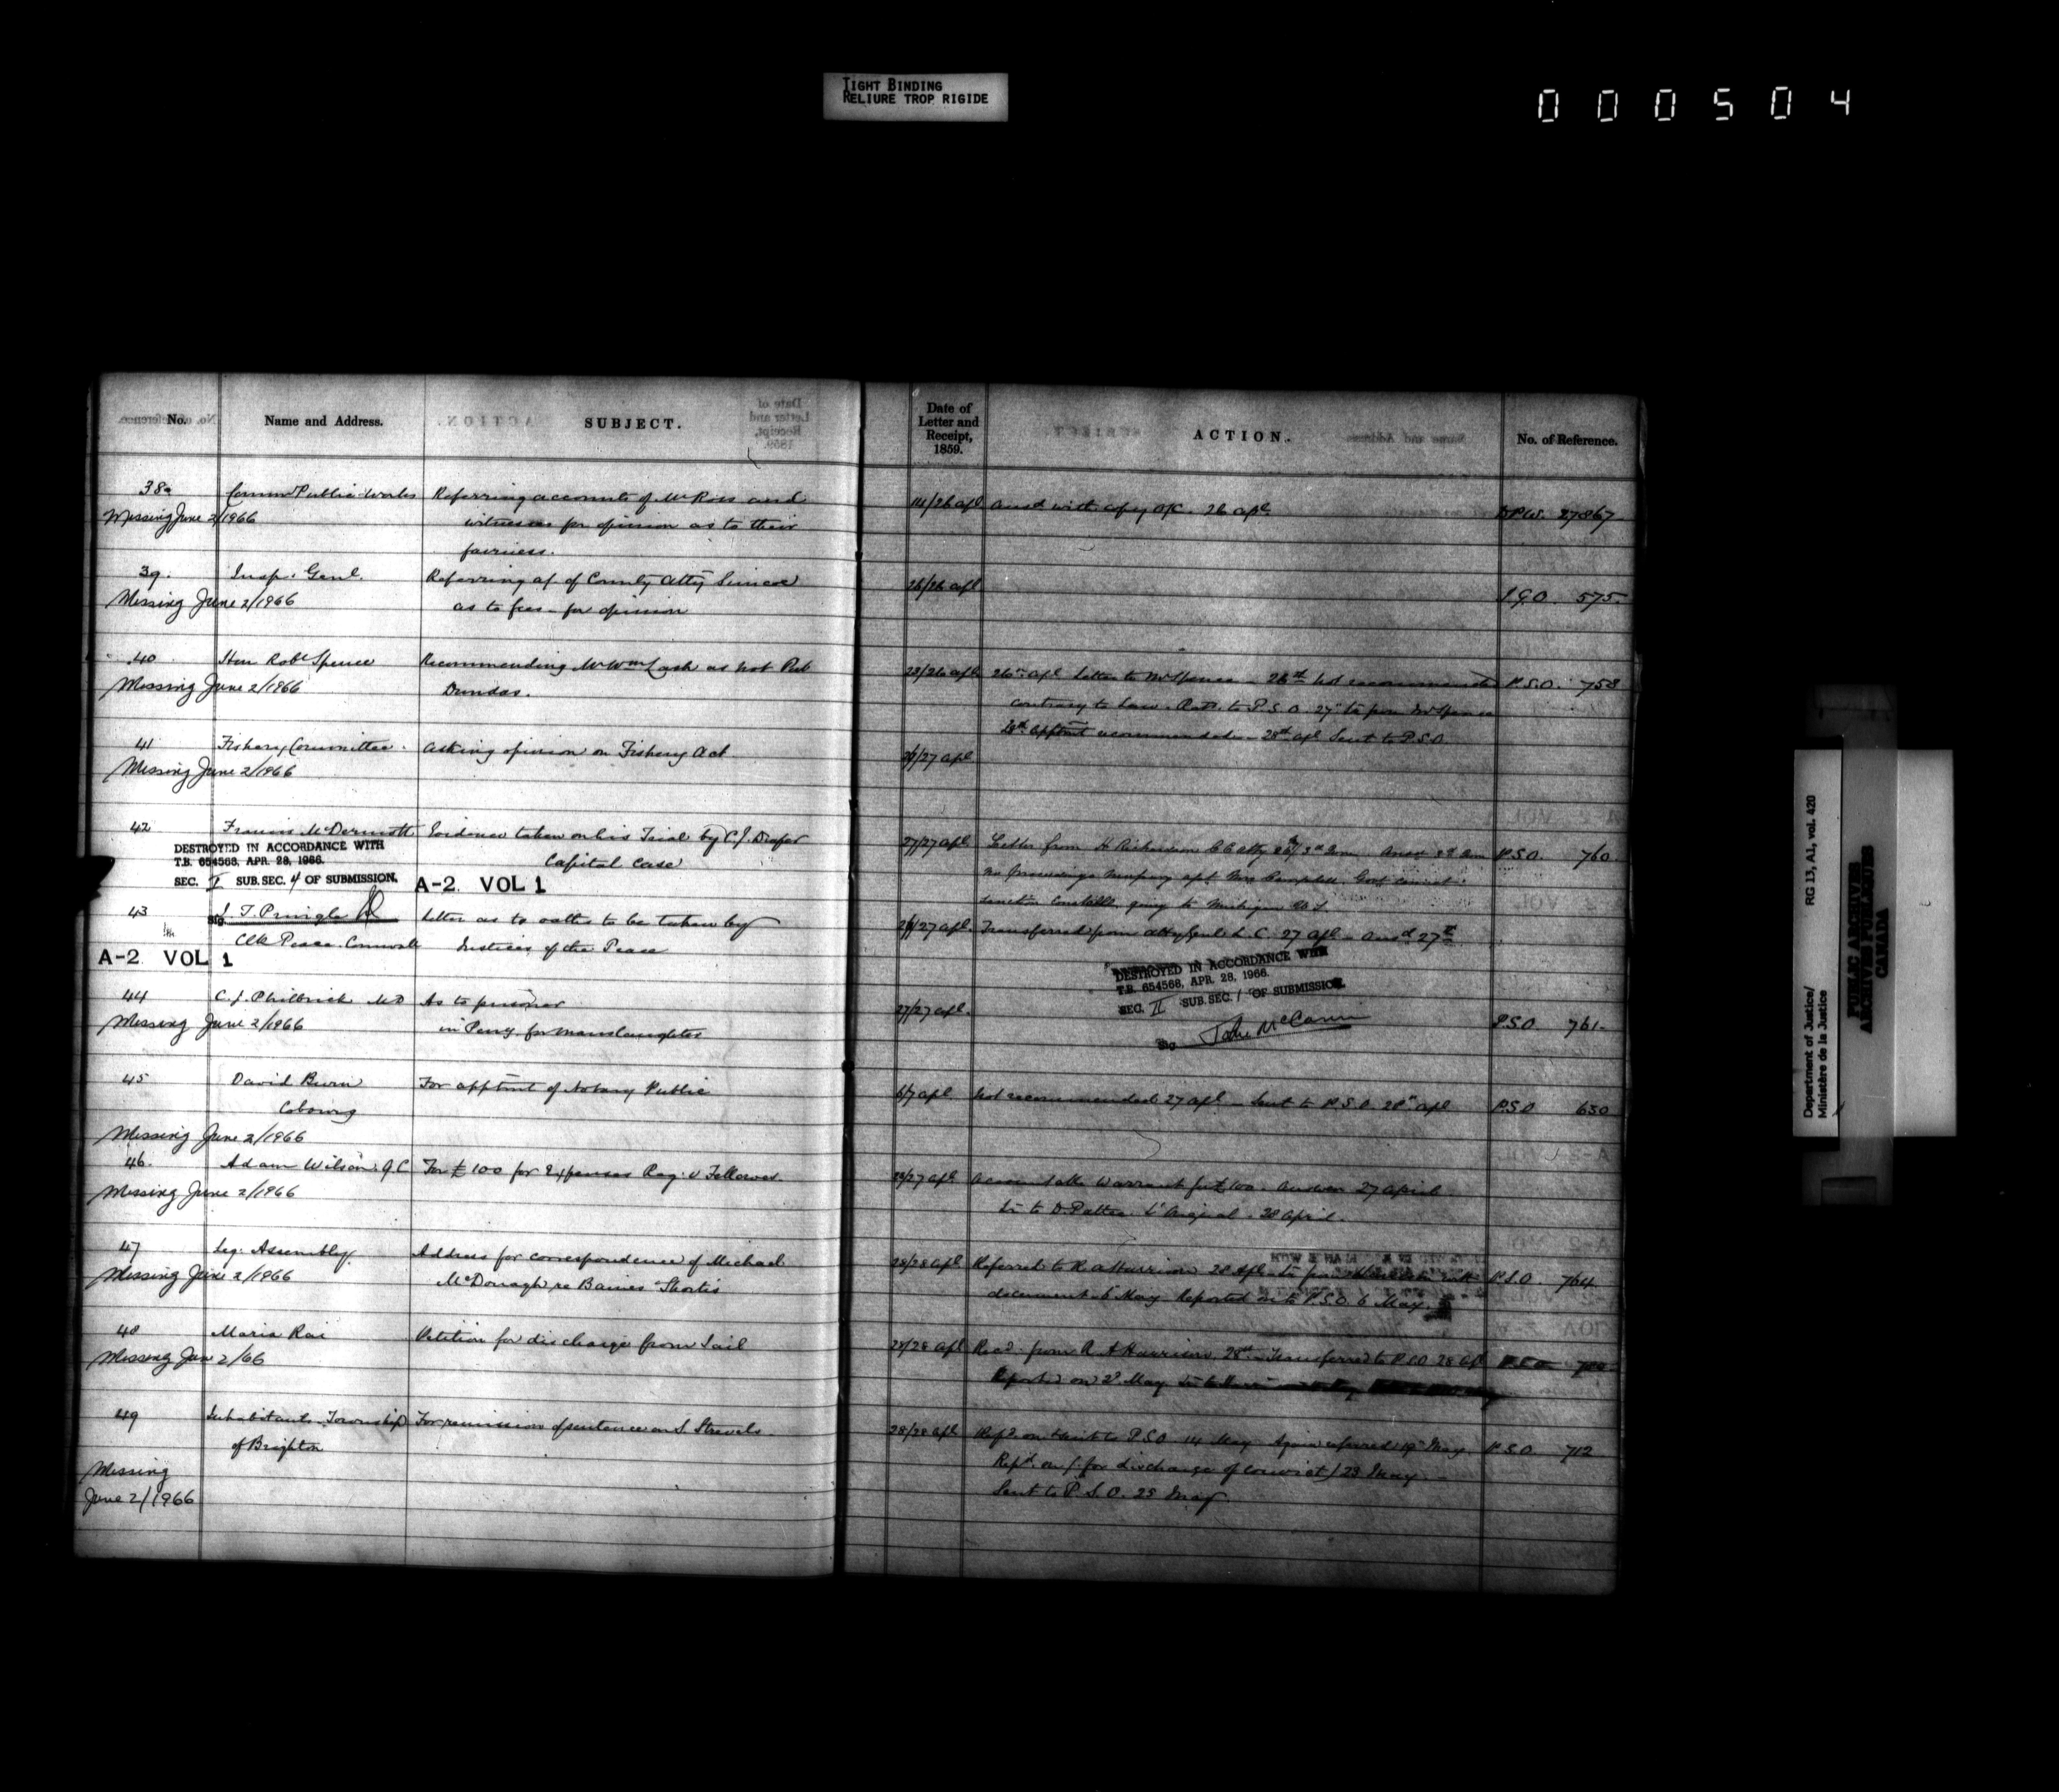 TIGHT BINDING
RELIURE TROP RIGIDE
000504
No. Name and Address. SUBJECT.
Date of Letter and Receipt, 1859. ACTION. No. of Reference.
38a Commr Public Works Referring accounts of Mr Ross and
Missing June 2/1966 witnesses for opinion as to their
fairness.
14/26 apl Ansd with copy 26 apl. D.P.W. 27867
39. Insp. Genl. Referring of County Atty Simcoe
Missing June 2/1966 as to fees - for opinion
26/26 apl I.G.O. 575
40 Hon Robt Spence Recommending Mr Wm Lash as Not Pub
Missing June 2/1966 Dundas.
23/26 apl 26 apl letter to Mr Spence - 26th Not recommended P.S.O. 758
contrary to Law. to P.S.O. 27 from Mr Spence
apptmt recommended - 28th apl Sent to P.S.O.
41 Fishery Committee. Asking opinion on Fishery Act
Missing June 2/1966
27 apl
42 Francis McDermott Evidence taken on his Trial by C.J. Draper
Capital Case
DESTROYED IN ACCORDANCE WITH
T.B. 654568, APR. 28, 1966.
SEC. I SUB.SEC. 4 OF SUBMISSION.
A-2 VOL 1
27/27 apl Letter from H Richardson P.S.O. 760
no proceedings Mrs Campbell. Govt cannot
sanction constable going to Michigan U.S.
43 J. T. Pringle Letter as to oaths to be taken by
Sig.
Clk Peace Cornwall Justices of the Peace
A-2 VOL 1
27 apl Transferred from Atty Genl L.C. 27 apl - Ansd 27th
DESTROYED IN ACCORDANCE WITH
T.B. 654568, APR. 28, 1966.
SEC. II SUB.SEC. 1 OF SUBMISSION.
Sig. McCann
44 C. J. Philbrick MD As to prisoner
Missing June 2/1966 in Peny. for manslaughter
27/27 apl. P.S.O 761
45 David Burn For apptmt of Notary Public
Cobourg
Missing June 2/1966
6/7 apl Not recommended 27 apl - Sent to P.S.O 28 apl P.S.O 630
46. Adam Wilson Q.C For £100 for Expenses Reg. v Fellowes.
Missing June 2/1966
27 apl Accountable Warrant for £100. Answer 27 April
to D. Pattee L'Orignal. 28 April.
47 Leg. Assembly. Address for correspondence of Michael
Missing June 2/1966 McDonagh re Baines Shortis
28/28 apl Referred to R. A Harrison 28 apl P.S.O. 764
document 6 May Reported on to P.S.O. 6 May.
48 Maria Rai Petition for discharge from Jail
Missing Jun 2/66
28/28 apl Recd from R A Harrison 28th - Transferred to P.S.O 28 apl P.S.O
Reported on 2d May
49 Inhabitants Township For remission of sentence on S. Strevels.
of Brighton
Missing
June 2/1966
28/28 apl Repd on & sent to P.S.O 14 May Again referred 19 May. P.S.O. 712
Repd. on (for discharge of convict) 23 May -
Sent to P.S.O. 25 May.
Department of Justice/
Ministère de la Justice
RG 13, A1, vol. 420
PUBLIC ARCHIVES
ARCHIVES PUBLIQUES
CANADA